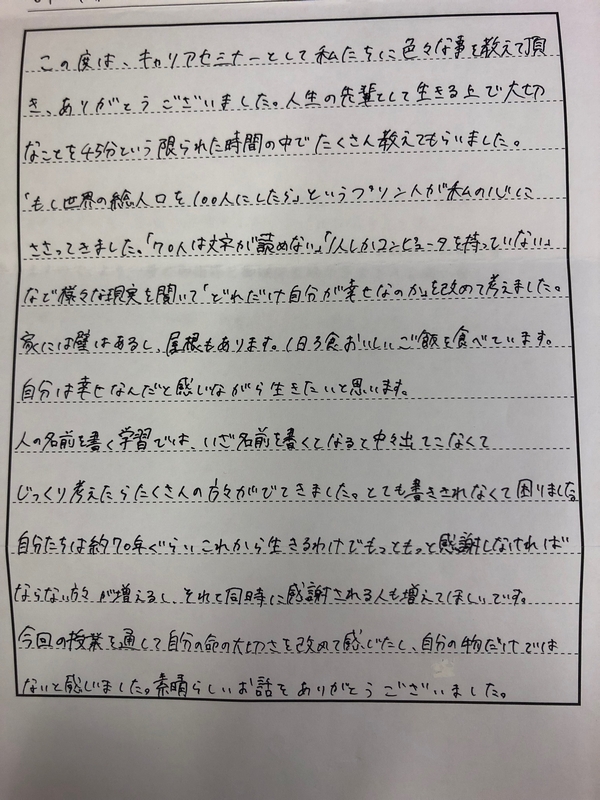 この度は、キャリアセミナーとして私たちに色々な事を教えて頂
き、ありがとうございました。人生の先輩として生きる上で大切
なことを45分という限られた時間の中でたくさん教えてもらいました。
「もし世界の総人口を100人にしたら」というプリントが私の心に
ささってきました。「70人は文字が読めない」「1人しかコンピュータを持っていない」
など様々な現実を聞いて「どれだけ自分が幸せなのか」を改めて考えました。
家には壁はあるし、屋根もあります。1日3食おいしいご飯を食べています。
自分は幸せなんだと感じながら生きたいと思います。
人の名前を書く学習では、いざ名前を書くとなると中々出てこなくて
じっくり考えたらたくさんの方々がでてきました。とても書ききれなくて困りました。
自分たちは約70年ぐらいこれから生きるわけでもっともっと感謝しなければ
ならない方々が増えるし、それと同時に感謝される人も増えてほしいです。
今回の授業を通して自分の命の大切さを改めて感じたし、自分の物だけでは
ないと感じました。素晴らしいお話をありがとうございました。